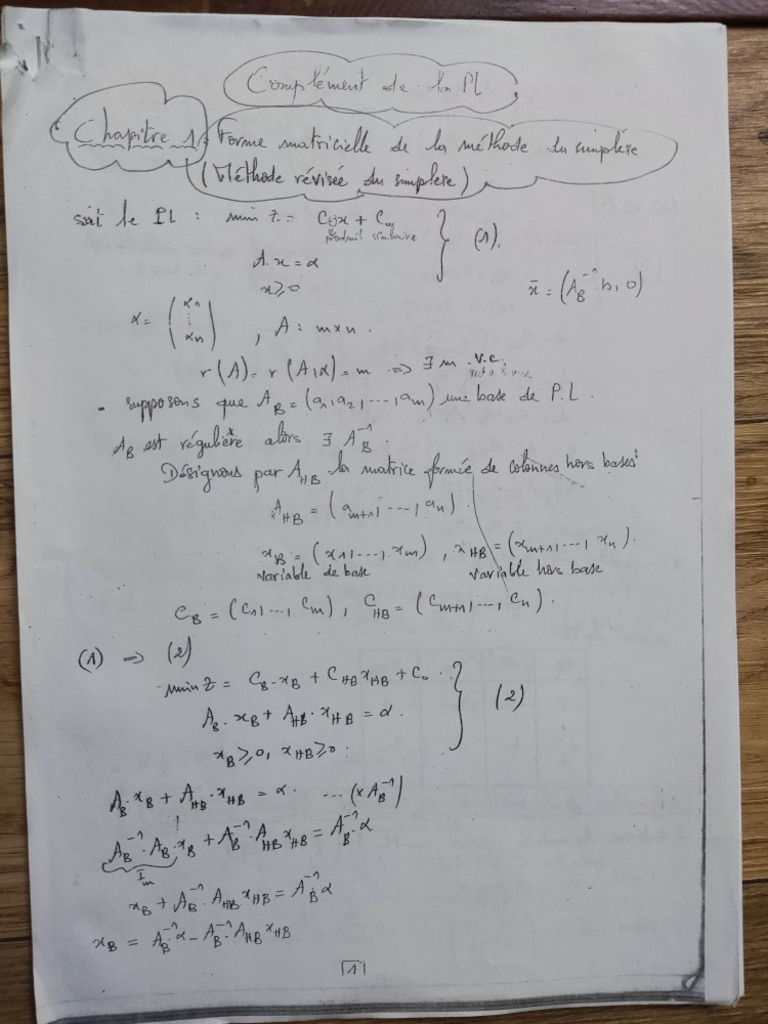 Complément de la PL
Chapitre 1: Forme matricielle de la méthode du simplèxe
(Méthode révisée du simplexe)
soit le PL : min Z = C x + C₀
A.x = α
x ≥ 0
} (1).
x̄ = (A_B⁻¹ b, 0)
α = (α₁ ⋮ αₙ) , A : m×n.
r(A) = r(A,α) = m => ∃ m V.C.
- supposons que A_B = (a₁, a₂, ..., aₘ) une base de P.L.
A_B est régulière alors ∃ A_B⁻¹.
Désignons par A_HB la matrice formée de colonnes hors bases:
A_HB = (aₘ₊₁, ..., aₙ).
x_B = (x₁, ..., xₘ) , x_HB = (xₘ₊₁, ..., xₙ).
variable de base variable hors base
C_B = (C₁, ..., Cₘ), C_HB = (Cₘ₊₁, ..., Cₙ).
(1) => (2)
min Z = C_B.x_B + C_HB x_HB + C₀.
A_B.x_B + A_HB.x_HB = α.
x_B ≥ 0, x_HB ≥ 0.
} (2)
A_B.x_B + A_HB.x_HB = α. ... (× A_B⁻¹)
A_B⁻¹.A_B.x_B + A_B⁻¹.A_HB x_HB = A_B⁻¹.α
Iₘ
x_B + A_B⁻¹.A_HB.x_HB = A_B⁻¹.α
x_B = A_B⁻¹.α - A_B⁻¹.A_HB x_HB
1